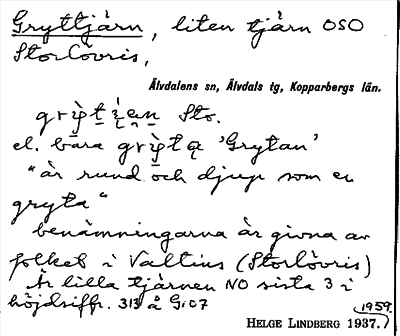 Gryttjärn, liten tjärn OSO
Storlövris,
Älvdalens sn, Älvdals tg, Kopparbergs län.
Sto.
el. bara 'Grytan'
"är rund och djup som en
gryta"
benämningarna är givna av
folket i Valtins (Storlövris)
Är lilla tjärnen NO sista 3 i
höjdsiffr. 313 å G:07
1959.
HELGE LINDBERG 1937.